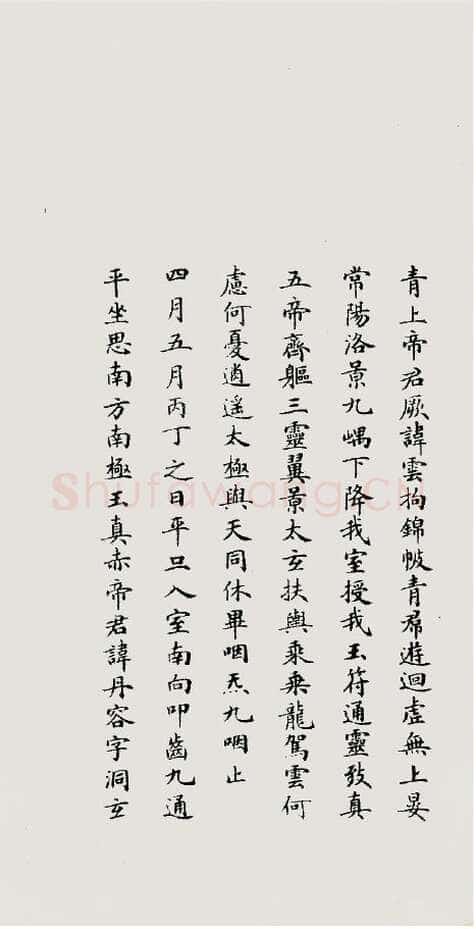 青上帝君厥諱雲拘錦帔青帬遊迴虛無上晏
常陽洛景九嵎下降我室授我玉符通靈致真
五帝齊軀三靈翼景太玄扶輿乘乗龍駕雲何
慮何憂逍遙太極與天同休畢咽炁九咽止
四月五月丙丁之日平旦入室南向叩齒九通
平坐思南方南極玉真赤帝君諱丹容字洞玄
Shufawang.CN